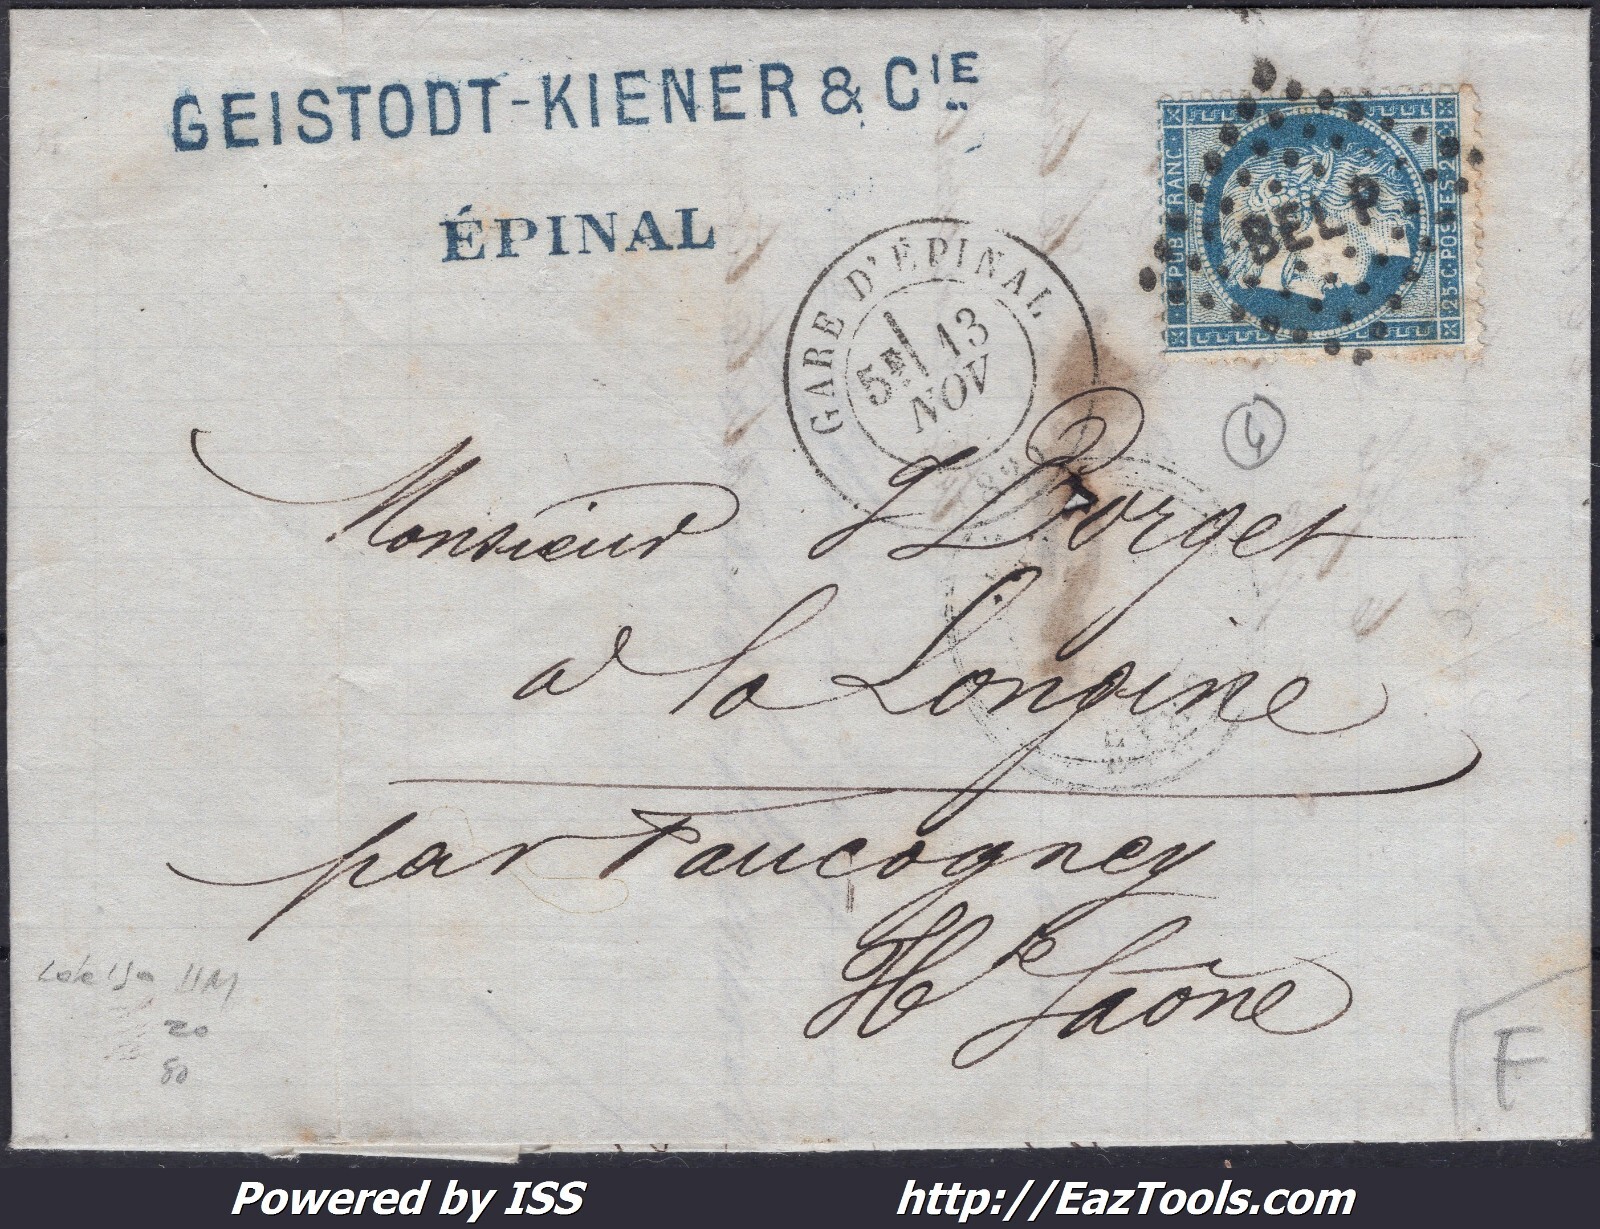 GEISTODT-KIENER & CIE
ÉPINAL
RÉPUB FRANC
25 C. POSTES 25 C
BELP
GARE D'ÉPINAL
5E 13
NOV
Monsieur J Dorget
à la Longine
par Faucogney
Hte Saône
20
80
F
Powered by ISS
http://EazTools.com